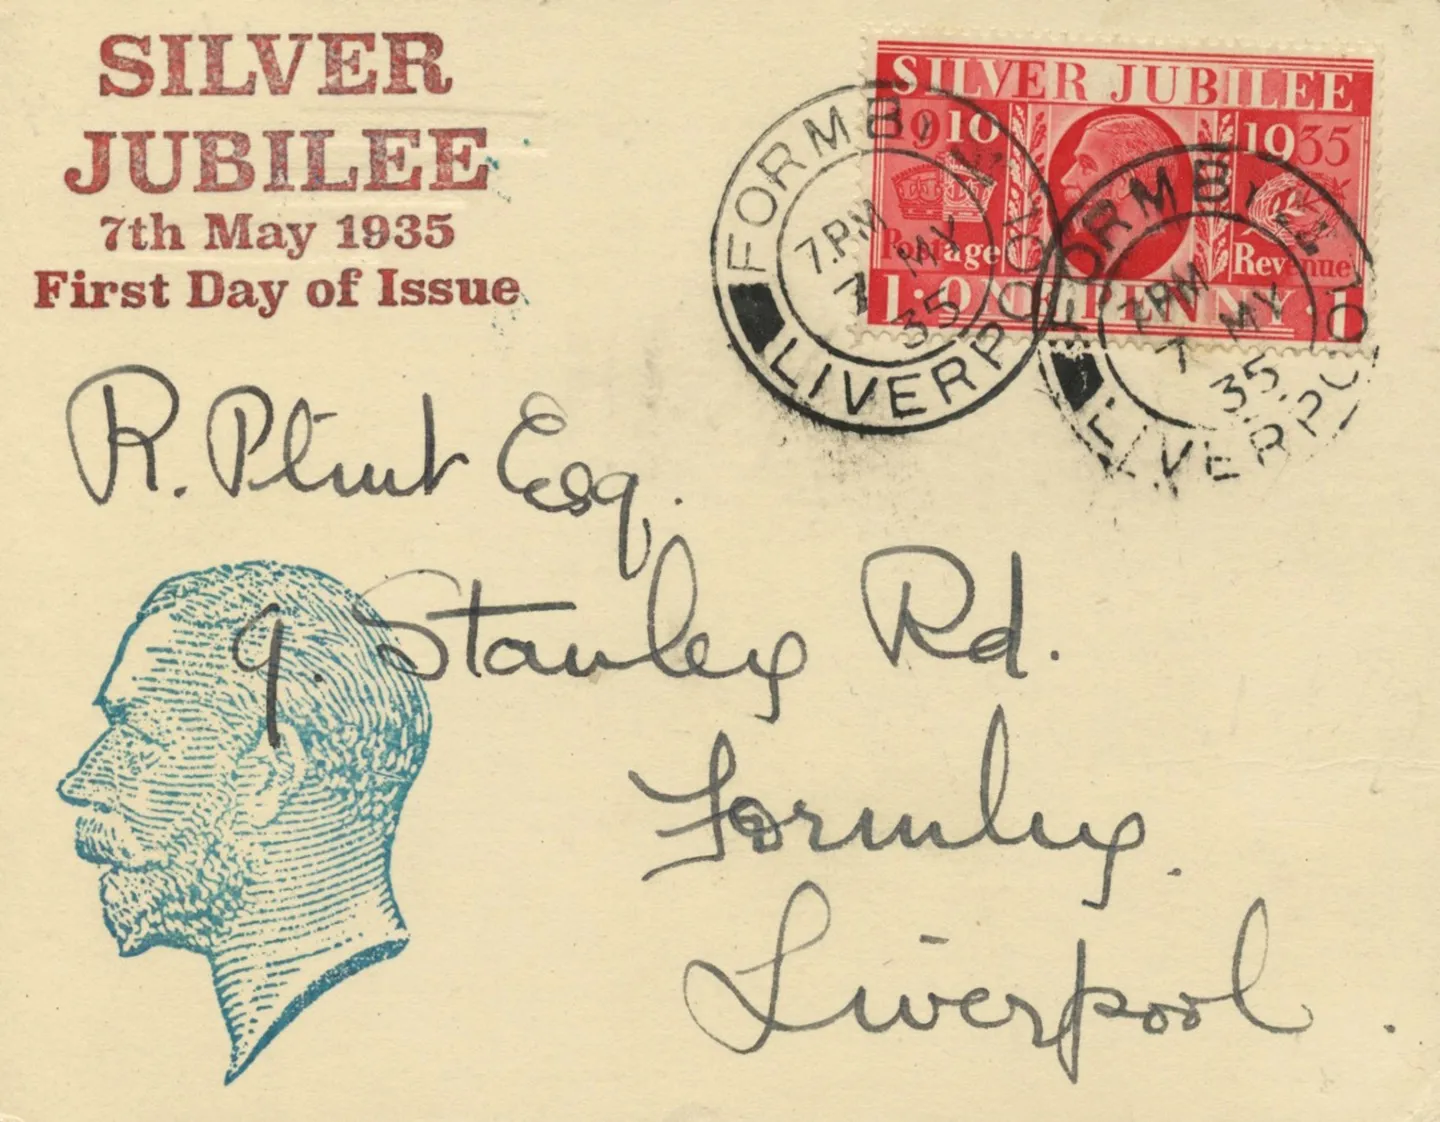 SILVER
JUBILEE
7th May 1935
First Day of Issue
SILVER JUBILEE
1910 1935
Postage Revenue
1:ONE PENNY.1
FORMBY
7.PM
7 MY
35
LIVERPOOL
FORMBY
7.PM
7 MY
35
LIVERPOOL
R. Plint Esq.
9. Stanley Rd.
Formby.
Liverpool.